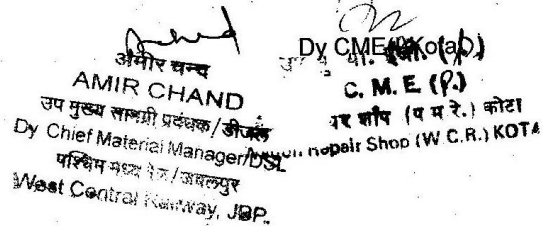 अमीर चन्द
AMIR CHAND
उप मुख्य सामग्री प्रबंधक/डीजल
Dy Chief Material Manager/DSL
पश्चिम मध्य रेल/जबलपुर
West Central Railway, JBP.
Dy CME
C. M. E. (P.)
शॉप (प म रे.) कोटा
Repair Shop (W.C.R.) KOTA